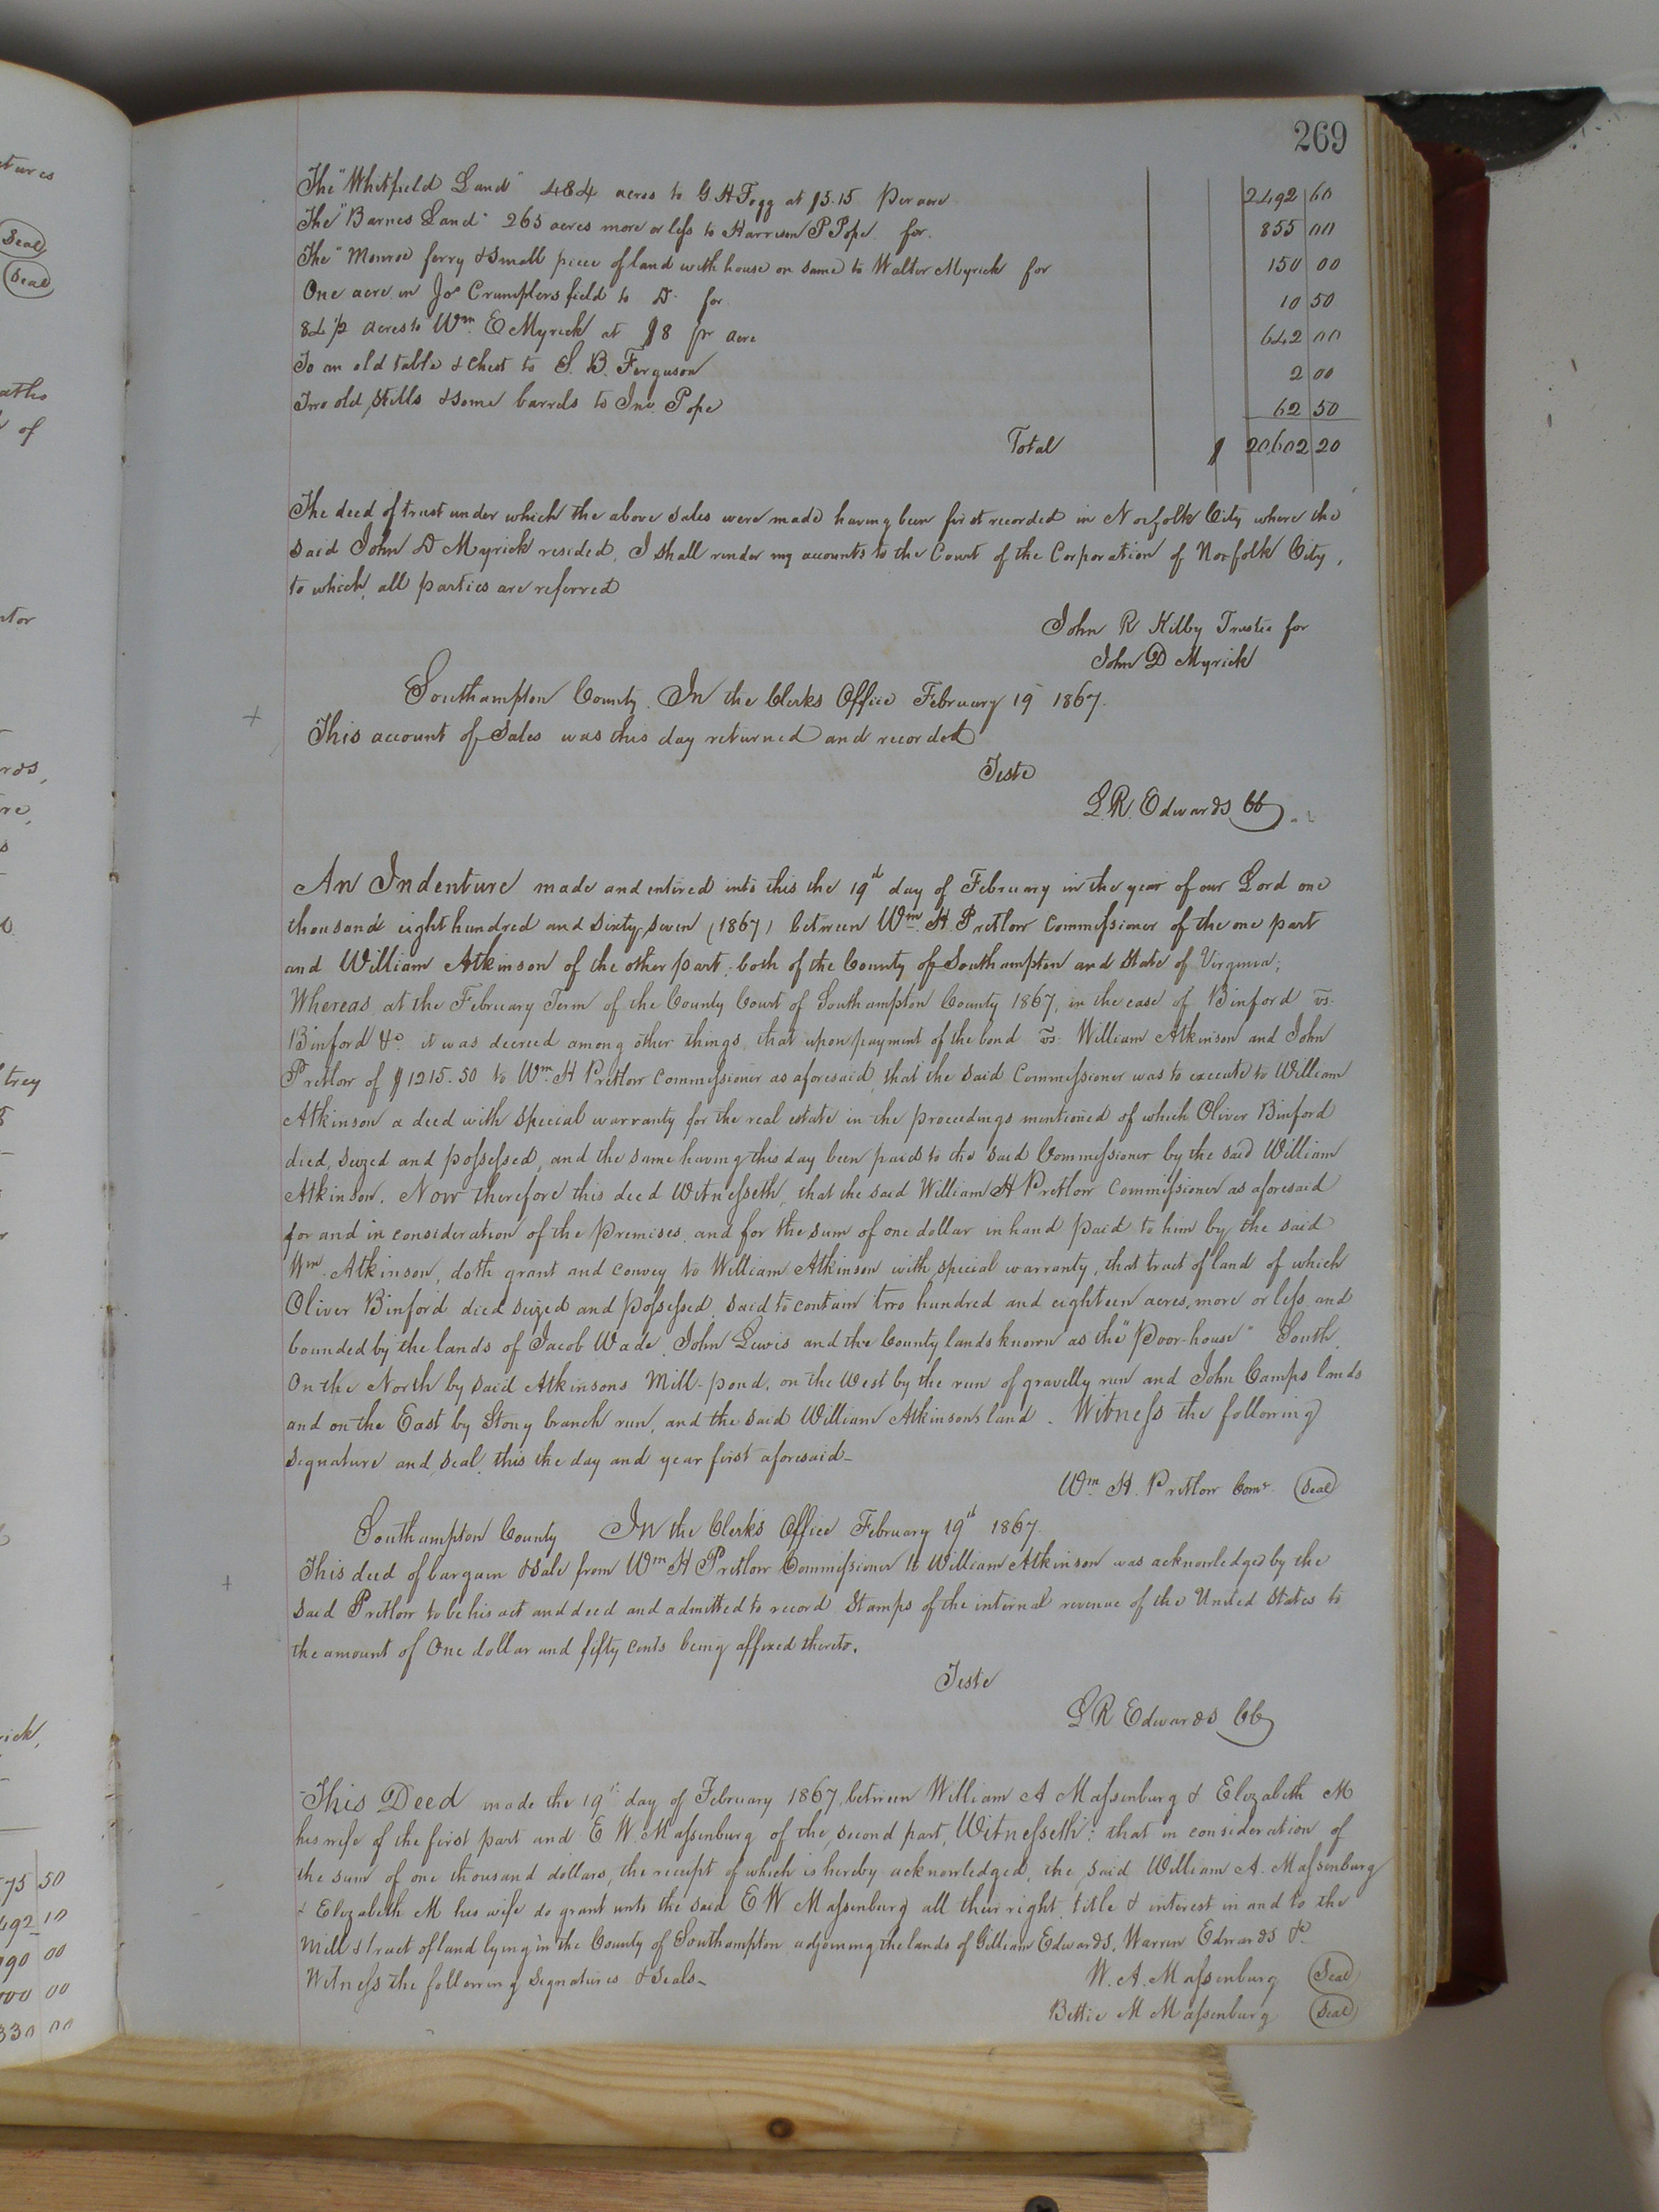 269
The "Whitfield Land" 484 acres to G. H. Fogg at $5.15 Per acre 2492 60
The "Barnes Land" 265 acres more or less to Harrison P Pope for. 855 00
The "Monroe ferry & small piece of land with house on same to Walter Myrick for 150 00
One acre in Jos Crumplers field to Do for 10 50
84 1/2 acres to Wm. E Myrick at $8 pr acre 642 00
To an old table & Chest to S. B. Ferguson 2 00
Two old Stills & some barrels to Jno. Pope 62 50
Total $ 20602 20
The deed of trust under which the above sales were made having been first recorded in Norfolk City where the
said John D Myrick resided, I shall render my accounts to the Court of the Corporation of Norfolk City,
to which all parties are referred
John R Kilby Trustee for
John D Myrick
Southampton County. In the Clerks Office February 19 1867.
This account of Sales was this day returned and recorded
Teste
L. R. Edwards CC
An Indenture made and entered into this the 19th day of February in the year of our Lord one
thousand eight hundred and sixty-seven (1867) between Wm. H. Pretlow Commissioner of the one part
and William Atkinson of the other part, both of the County of Southampton and State of Virginia;
Whereas at the February Term of the County Court of Southampton County 1867, in the case of Binford vs.
Binford &c. it was decreed among other things, that upon payment of the bond vs. William Atkinson and John
Pretlow of $1215.50 to Wm. H Pretlow Commissioner as aforesaid, that the said Commissioner was to execute to William
Atkinson a deed with special warranty for the real estate in the proceedings mentioned of which Oliver Binford
died, seized and possessed, and the same having this day been paid to the said Commissioner by the said William
Atkinson. Now therefore this deed Witnesseth, that the said William H Pretlow Commissioner as aforesaid
for and in consideration of the premises, and for the sum of one dollar in hand paid to him by the said
Wm. Atkinson, doth grant and convey to William Atkinson with special warranty, that tract of land of which
Oliver Binford died seized and possessed, said to contain two hundred and eighteen acres, more or less and
bounded by the lands of Jacob Wade, John Lewis and the County lands known as the "Poor-house" South,
On the North by said Atkinsons Mill-pond, on the West by the run of gravelly run and John Camps lands
and on the East by Stony branch run, and the said William Atkinsons land. Witness the following
signature and seal, this the day and year first aforesaid-
Wm. H. Pretlow Comr. (Seal)
Southampton County In the Clerk's Office February 19th 1867
This deed of bargain & sale from Wm H Pretlow Commissioner to William Atkinson was acknowledged by the
said Pretlow to be his act and deed and admitted to record Stamps of the internal revenue of the United States to
the amount of One dollar and fifty cents being affixed thereto.
Teste
L R Edwards CC
This Deed made the 19th day of February 1867, between William A Massenburg & Elizabeth M
his wife of the first part and E W. Massenburg of the second part, Witnesseth: that in consideration of
the sum of one thousand dollars, the receipt of which is hereby acknowledged, the said William A. Massenburg
& Elizabeth M his wife do grant unto the said E W Massenburg all their right, title & interest in and to the
Mill & tract of land lying in the County of Southampton adjoining the lands of Gilliam Edwards, Warren Edwards &c
Witness the following Signatures & Seals-
W. A. Massenburg (Seal)
Bettie M Massenburg (Seal)